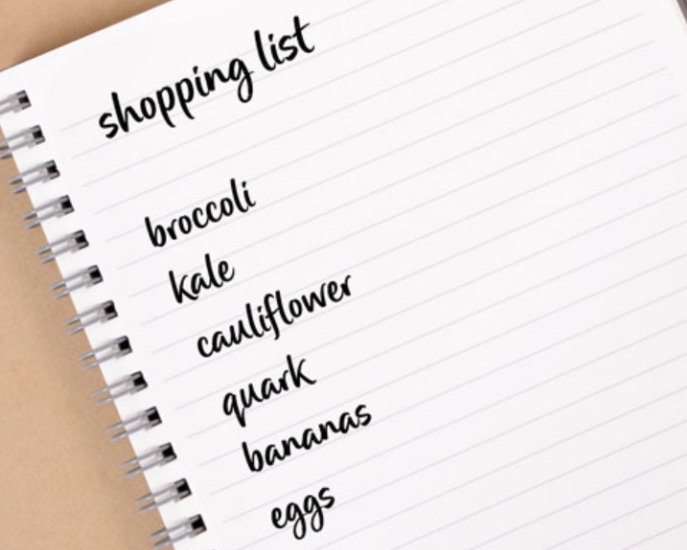 shopping list
broccoli
kale
cauliflower
quark
bananas
eggs